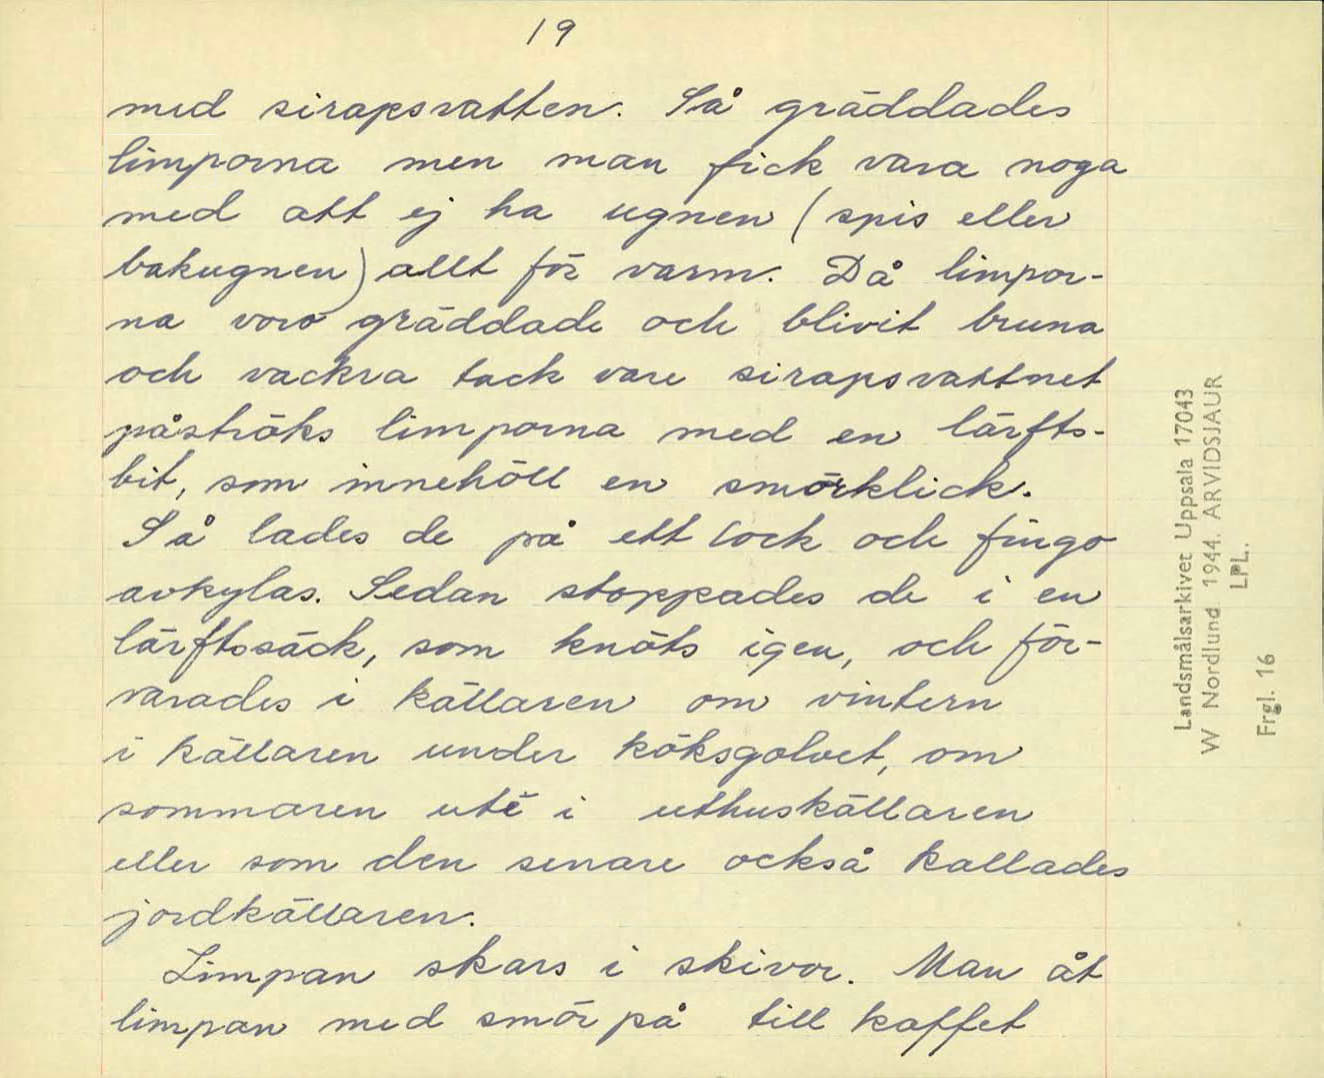 19
med sirapsvatten. Så gräddades
limporna men man fick vara noga
med att ej ha ugnen (spis eller
bakugnen) allt för varm. Då limpor-
na voro gräddade och blivit bruna
och vackra tack vare sirapsvattnet
påströks limporna med en lärfts-
bit, som innehöll en smörklick.
Så lades de på ett lock och fingo
avkylas. Sedan stoppades de i en
lärftssäck, som knöts igen, och för-
varades i källaren om vintern
i källaren under köksgolvet, om
sommaren ute i uthuskällaren
eller som den senare också kallades
jordkällaren.
Limpan skars i skivor. Man åt
limpan med smör på till kaffet
Landsmålsarkivet Uppsala 17043
W Nordlund 1944. ARVIDSJAUR
LPL.
Frgl. 16